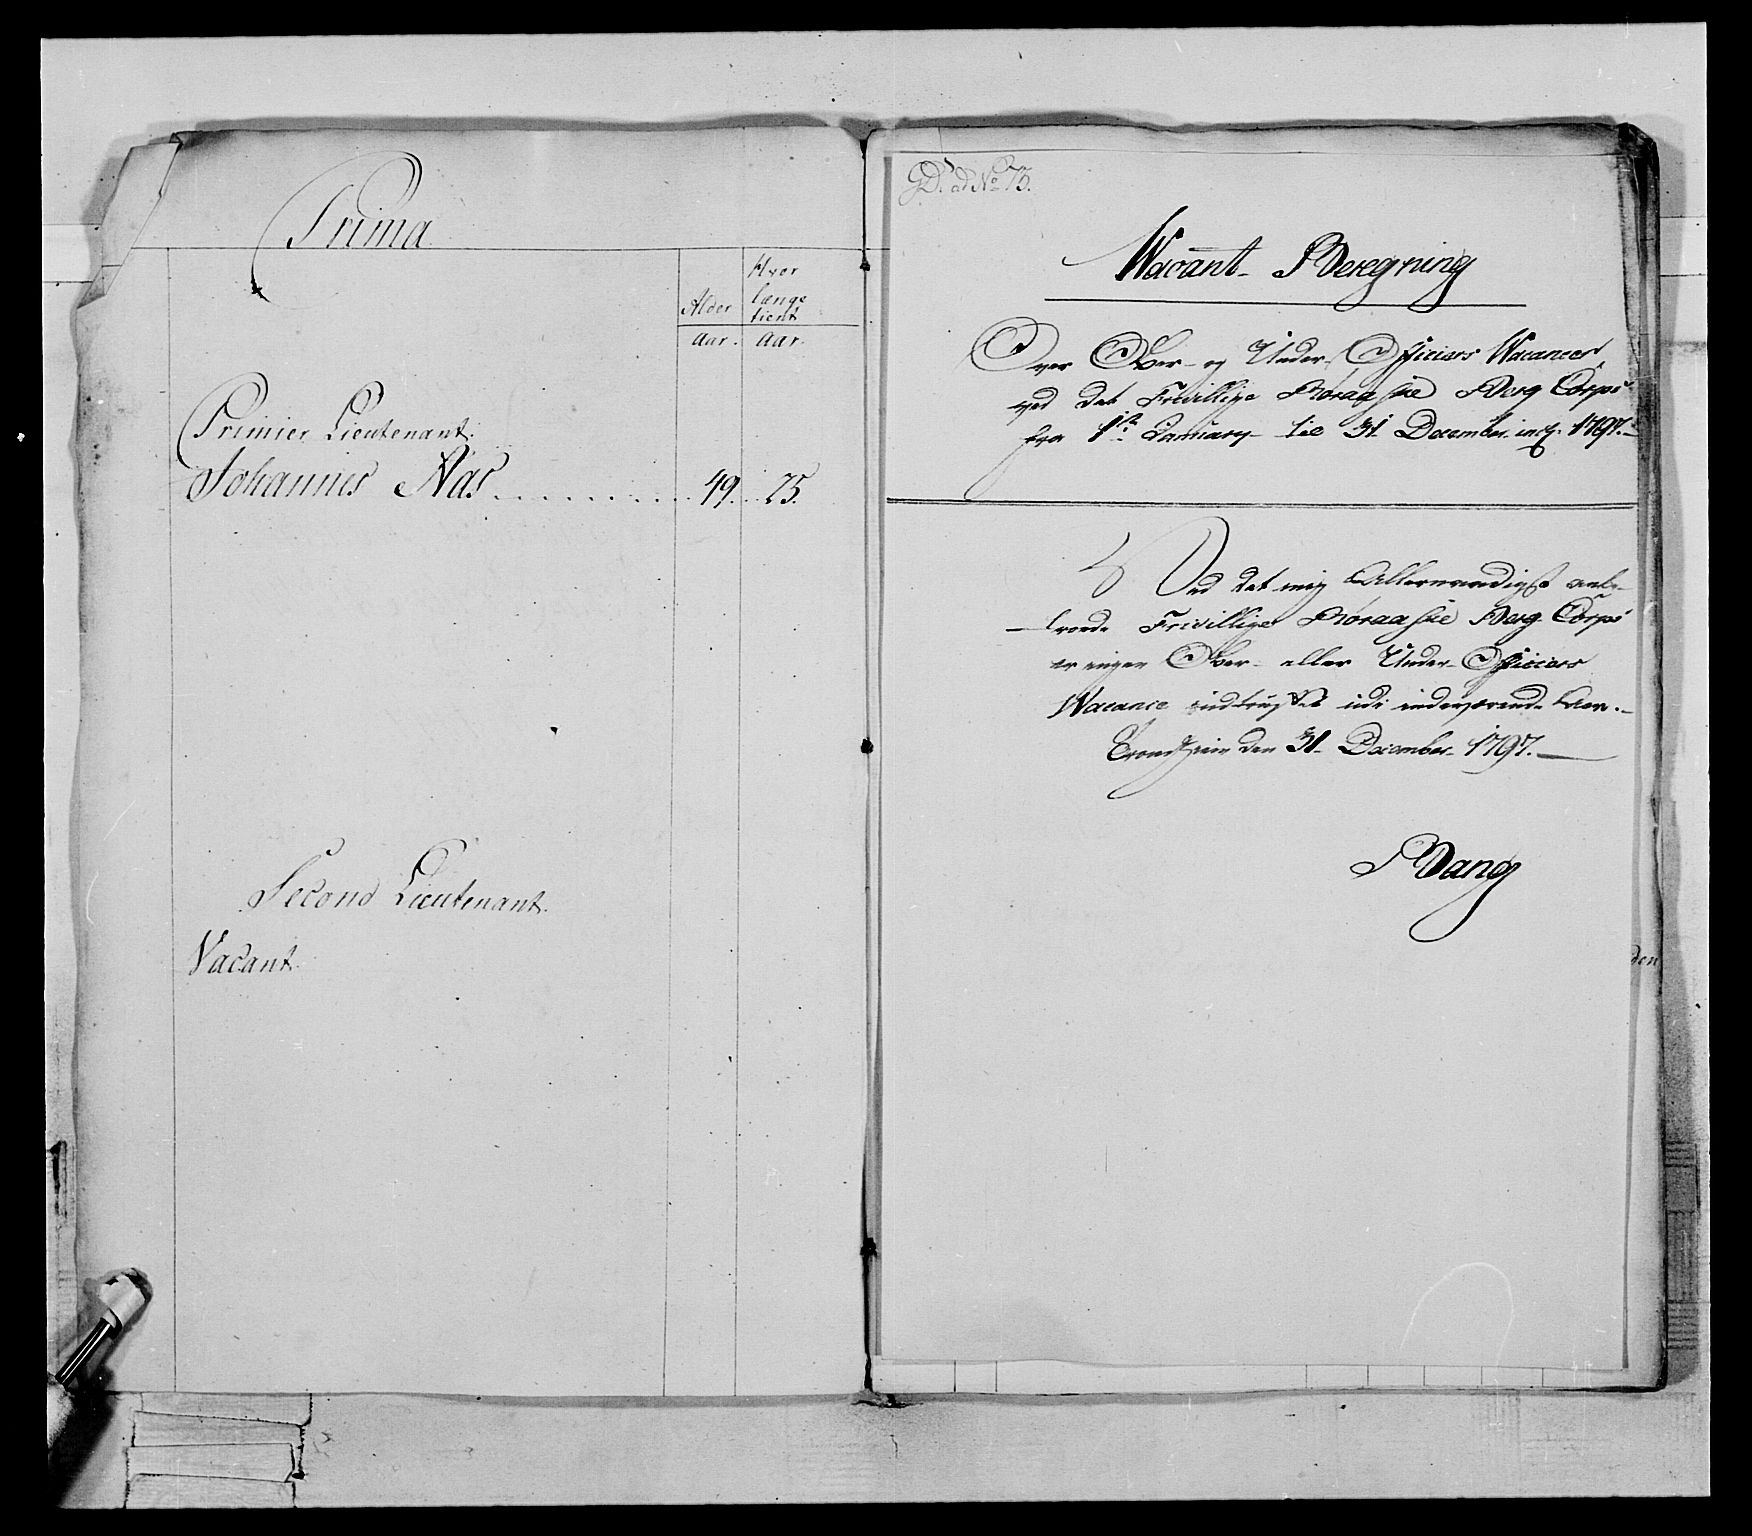 Prima
Alder
Hvor
længe
tient
Aar.
Aar.
Primier Lieutenant.
Johannes Aas
49.
25.
Second Lieutenant.
Vacant.
GD. ad No 73.
Wacant-Beregning
Over Ober- og Under-Officiers Wacancer
ved det Frivillige Røraasske Berg Corps
fra 1ste January til 31 December incl. 1797.
Ved det mig Allernaadigst anbe-
troede Frivillige Røraasske Berg Corps
er ingen Ober- eller Under-Officiers
Wacance indtruffet udi indeværende Aar.
Trondhiem den 31 December 1797.
Bang
den